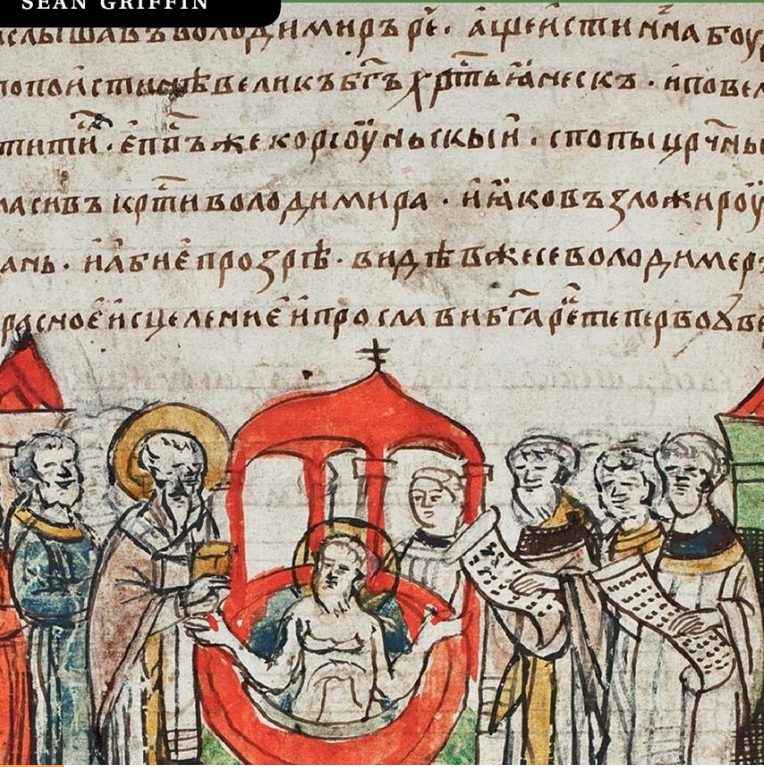 SEAN GRIFFIN
слышавъ володимиръ ре҇. аще истин҇на боу
поистинѣ великъ б҃гъ хр҇тьꙗнескъ · и повел
тити · еп҇пъ же корсоуньскыи · с попы цр҃чны
ласивъ кр҇ти володимира · и ꙗко възложи роу
ань · и абие прозрѣ · видѣвъ же се володимеръ
расное исцеление и прослави б҃га ре҇ теперво